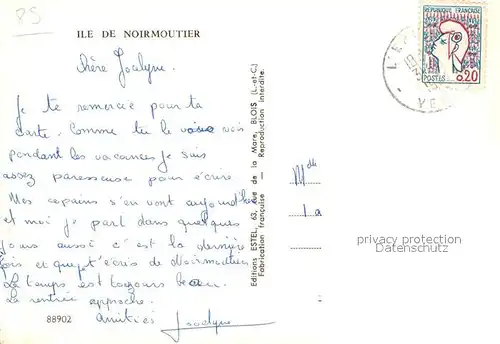 PS
ILE DE NOIRMOUTIER
RÉPUBLIQUE FRANÇAISE
POSTES 0,20
chère Jocelyne.
Je te remercie pour ta
carte. Comme tu le vois
pendant les vacances je suis
assez paresseuse pour écrire
Mes copains s'en vont aujourd'hui
et moi je part dans quelques
jours aussi c'est la dernière
fois et que je t'écris de Noirmoutier
Le temps est toujours beau.
La rentrée approche.
Amitiés Jocelyne
88902
Editions ESTEL, 63, rue de la Mare, BLOIS (L.-et-C.)
Fabrication française — Reproduction interdite.
Mdlle
La
privacy protection
Datenschutz